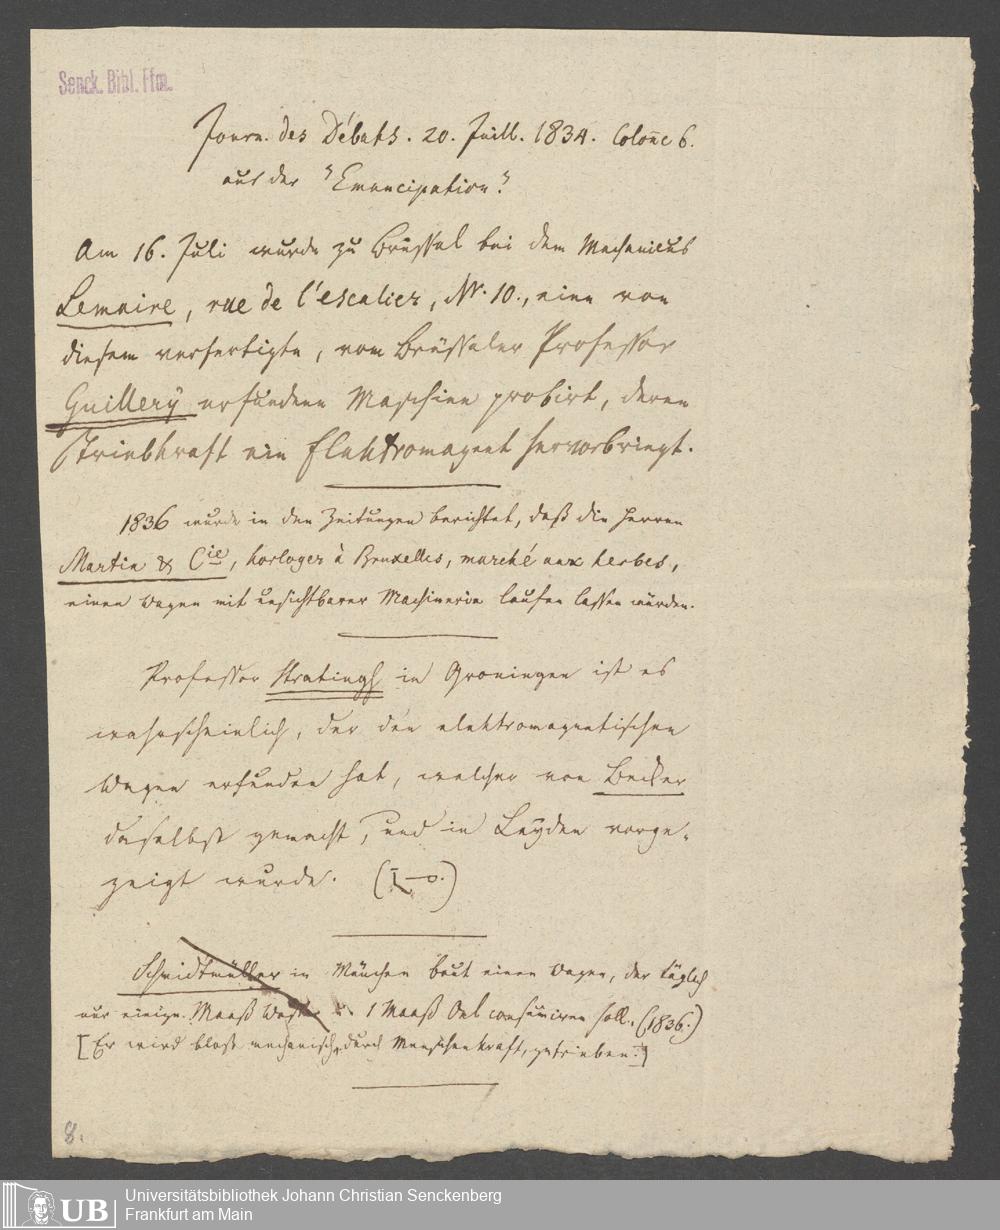 Senck. Bibl. Ffm.
Journ. des Débats. 20. Juill. 1834. Colonne 6.
aus der "Emancipation".
Am 16. Juli wurde zu Brüssel bei dem Mechanicus
Lemaire, rue de l'escalier, Nr. 10., eine von
diesem verfertigte, vom Brüsseler Professor
Guillery erfundene Maschine probirt, deren
Triebkraft ein Elektromagnet hervorbringt.
1836 wurde in den Zeitungen berichtet, daß die Herren
Martin & Cie, horloger à Bruxelles, marché aux herbes,
einen Wagen mit unsichtbarer Machinerie laufen lassen würden.
Professor Stratingh in Groningen ist es
wahrscheinlich, der den elektromagnetischen
Wagen erfunden hat, welcher von Becker
daselbst gemacht, und in Leyden vorge-
zeigt wurde.
Schmidtmüller in München baut einen Wagen, der täglich
nur einige Maaß Wasser u. 1 Maaß Oel consumiren soll. (1836.)
[Er wird bloß mechanisch, durch Menschenkraft, getrieben.]
8.
UB
Universitätsbibliothek Johann Christian Senckenberg
Frankfurt am Main